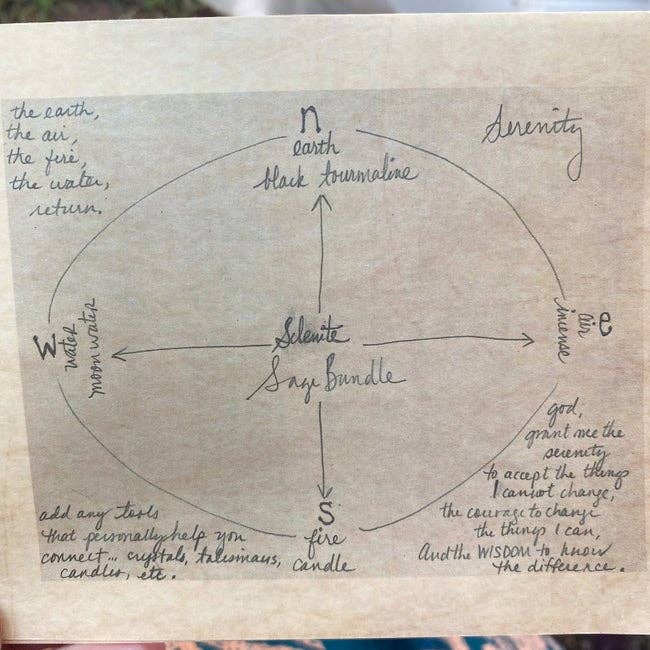 the earth,
the air,
the fire,
the water,
return.
n
earth
black tourmaline
Serenity
W
water
moon water
Selenite
Sage Bundle
e
air
incense
S
fire
candle
add any tools
that personally help you
connect... crystals, talismans,
candles, etc.
god,
grant me the
serenity
to accept the things
I cannot change,
the courage to change
the things I can,
And the WISDOM to know
the difference.